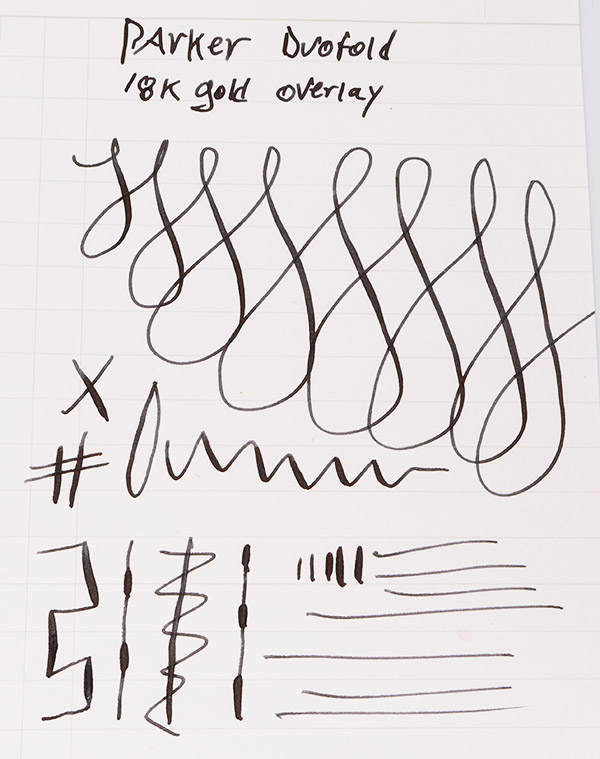 Parker Duofold
18K gold overlay
X
#